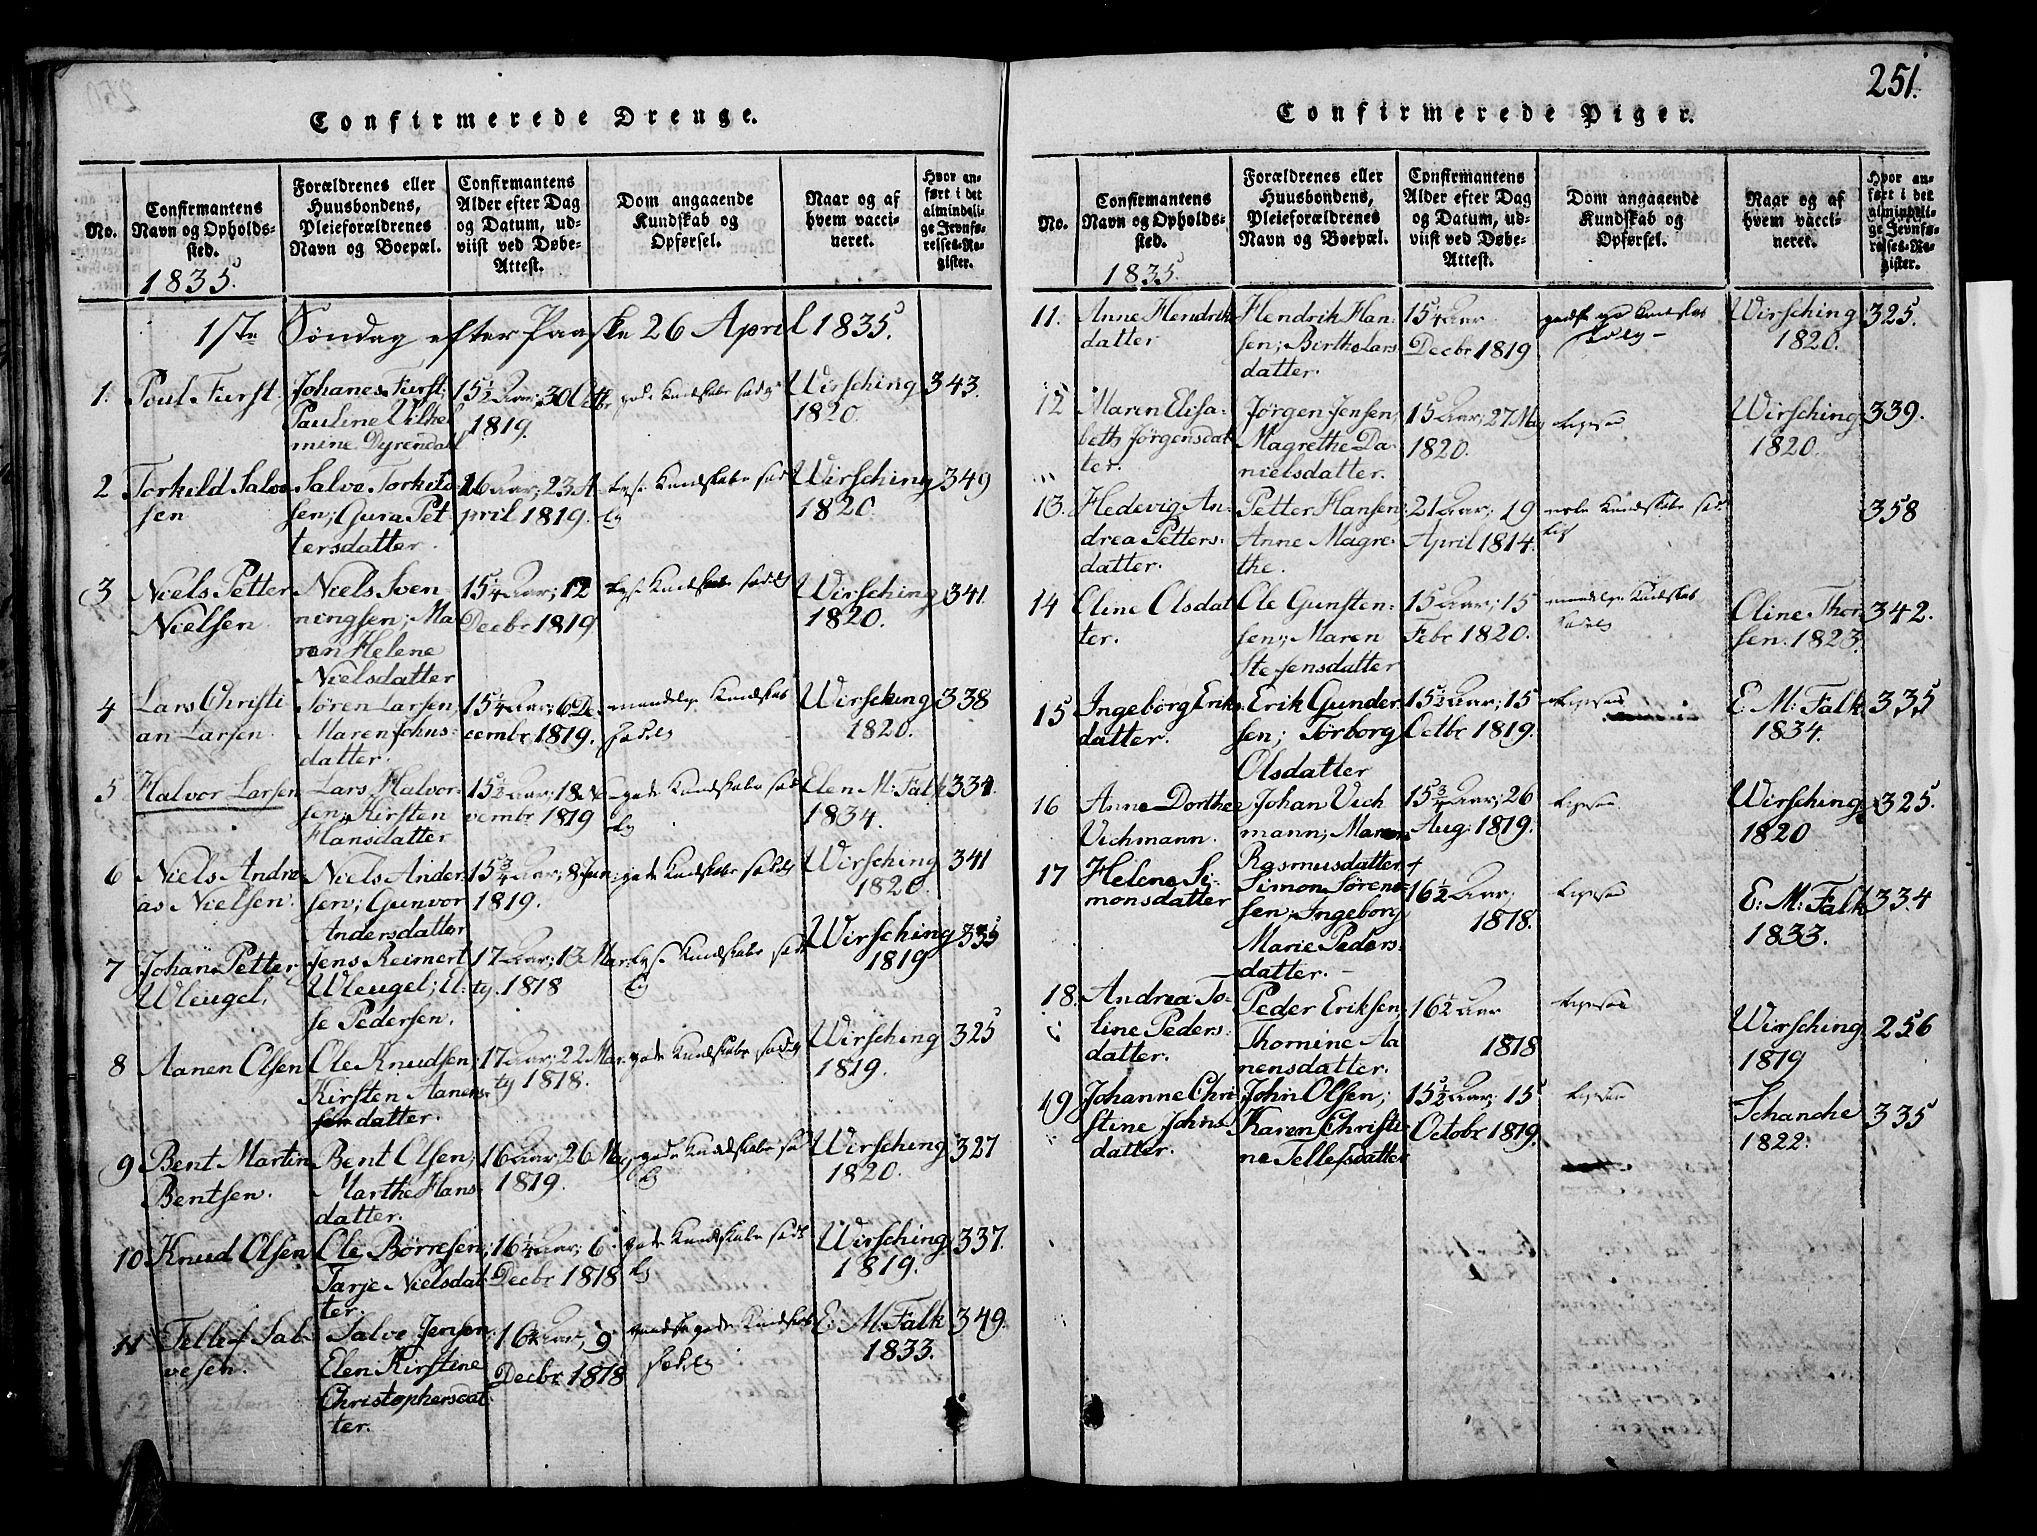 Confirmerede Drenge.
No.
Confirmantens
Navn og Opholds-
sted.
1835.
Forældrenes eller
Huusbondens,
Pleieforældrenes
Navn og Boepæl.
Confirmantens
Alder efter Dag
og Datum, ud-
viist ved Døbe-
Attest.
Dom angaaende
Kundskab og
Opførsel.
Naar og af
hvem vacci-
neret.
Hvor an-
ført i det
almindeli-
ge Jevnfø-
relses-Re-
gister.
1ste Søndag efter Paaske 26 April 1835.
1. Poul Fürst
Johanes Fürst;
Pauline Vilhel
mine Dyrendall
15½ Aar; 30 Octbr
1819.
gode Kundskaber
Wirsching
1820.
343.
2 Torkild Salve
sen
Salve Torkild
sen; Gura Pet
tersdatter.
16 Aar; 23 A
pril 1819.
Wirsching
1820.
349
3 Niels Petter
Nielsen.
Niels Sven
ningsen; Ma
ren Helene
Nielsdatter
15¼ Aar; 12
Decbr 1819
Wirsching
1820.
341.
4 Lars Christi
an Larsen.
Søren Larsen,
Maren Johns-
datter.
15¼ Aar; 6 De-
cembr 1819.
Wirsching
1820.
338
5 Halvor Larsen
Lars Halvor-
sen; Kirsten
Hansdatter
15½ Aar; 18 No
vembr 1819
Elen M: Falk
1834.
334.
6 Niels Andre
as Nielsen.
Niels Ander-
sen; Gunvor
Andersdatter
15¾ Aar; 8 Jun:
1819.
Wirsching
1820.
341
7 Johan Petter
Wleugel.
Jens Reimert
Wleugel; El-
se Pedersen.
17 Aar; 13 Mar-
ty. 1818
Wirsching
1819
335
8 Aanen Olsen
Ole Knudsen;
Kirsten Aanen-
datter.
17 Aar; 22 Mar-
ty 1818.
Wirsching
1819.
325
9 Bent Martin
Bentsen.
Bent Olsen;
Marthe Hans-
datter.
16 Aar; 26 May
1819.
Wirsching
1820.
327
10 Knud Olsen
Ole Börresen;
Tarje Nielsdat
ter.
16¼ Aar; 6
Decbr 1818
Wirsching
1819.
337.
11 Tellef Sal-
vesen.
Salve Jensen
Elen Kirstine
Christophersdat
ter.
16¼ Aar; 9
Decbr 1818
E. M: Falk
1833.
349.
251.
Confirmerede Piger.
No.
Confirmantens
Navn og Opholds-
sted.
1835.
Forældrenes eller
Huusbondens,
Pleieforældrenes
Navn og Boepæl.
Confirmantens
Alder efter Dag
og Datum, ud-
viist ved Døbe-
Attest.
Dom angaaende
Kundskab og
Opførsel.
Naar og af
hvem vacci-
neret.
Hvor an-
ført i det
almindeli-
ge Jevnfø-
relses-Re-
gister.
11. Anne Hendrik
datter
Hendrik Han-
sen; Birthe Lars
datter.
15¼ Aar
Decbr 1819
Wirsching
1820.
325.
12 Maren Elisa-
beth Jørgensdat
ter.
Jørgen Jensen,
Magrethe Da-
nielsdatter.
15 Aar; 27 May
1820.
Wirsching
1820.
339.
13. Hedevig An-
drea Petters-
datter.
Petter Hansen;
Anne Magre-
the.
21 Aar; 19
April 1814.
358
14 Oline Olsdat
ter.
Ole Gunsten-
sen; Maren
Stefensdatter
15 Aar; 15
Febr 1820.
Oline Thor
sen. 1823.
342.
15 Ingeborg Eriks
datter.
Erik Gunder
sen; Torborg
Olsdatter
15½ Aar; 15
Octbr 1819.
E. M: Falk
1834.
335
16 Anne Dorthe
Vichmann.
Johan Vich
mann; Maren
Rasmusdatter
15¾ Aar; 26
Aug: 1819.
Wirsching
1820
325.
17 Helene Si-
monsdatter
Simon Søren-
sen; Ingeborg
Marie Peders-
datter.
16½ Aar;
1818.
E: M: Falk
1833.
334
18. Andrea To-
line Peders-
datter.
Peder Eriksen,
Thomine Aa
nensdatter.
16½ Aar
1818
Wirsching
1819
256
19 Johanne Chri
stine Johns-
datter.
John Olsen;
Karen Christi-
ne Tellefsdatter
15½ Aar; 15
Octobr 1819.
Schanche
1822.
335